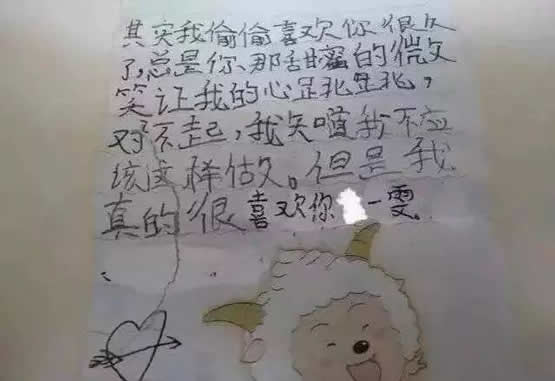 其实我偷偷喜欢你很久
了,总是你、那甜蜜的微
笑让我的心
对不起,我道我不应
该这样做。但是我
真的很喜欢你 一雯